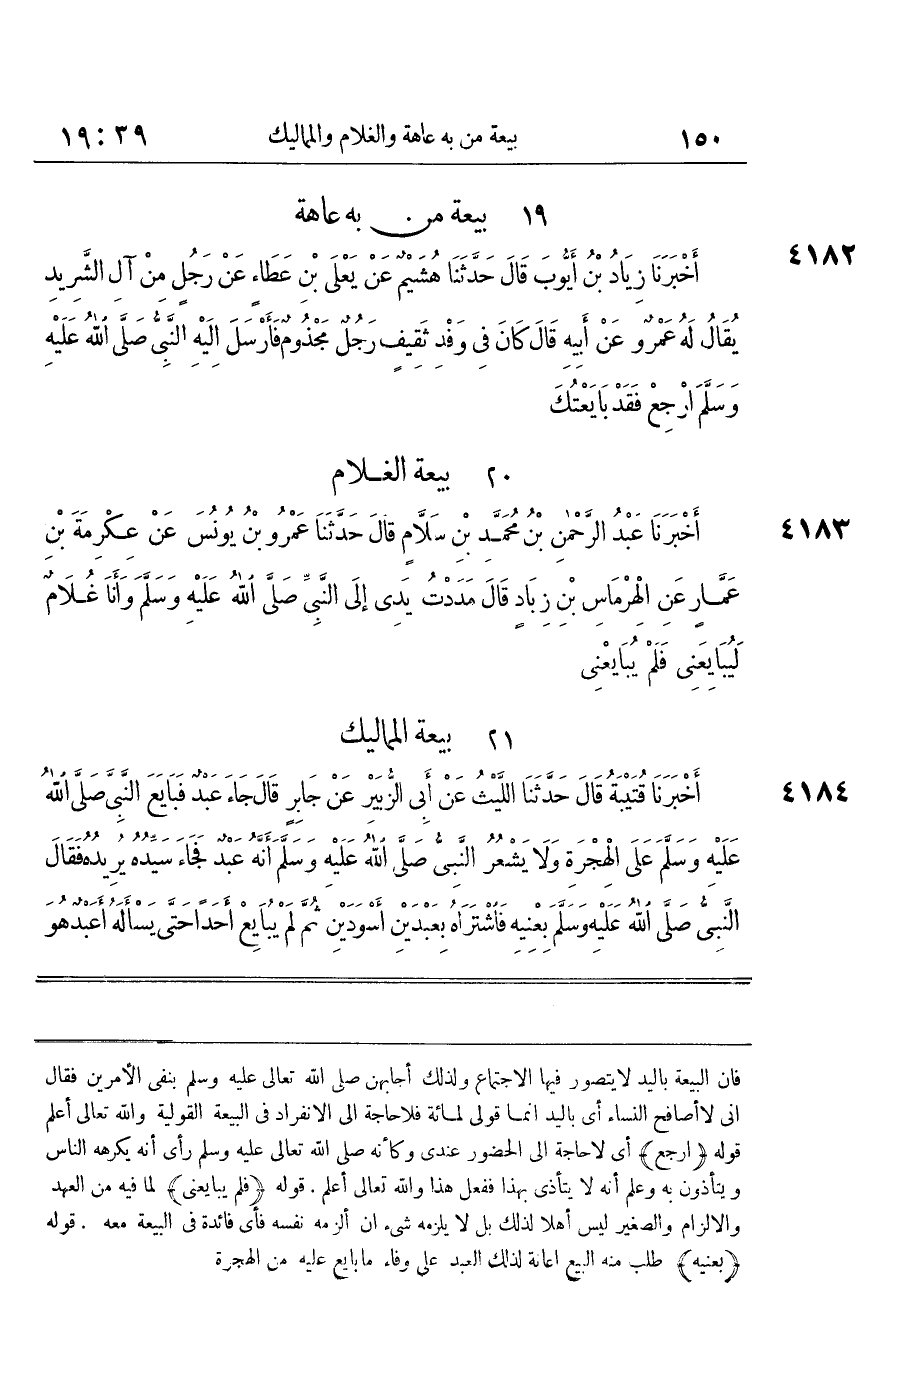 ١٥٠ بيعة من به عاهة والغلام والمماليك ٣٩ : ١٩
١٩ بيعة من به عاهة
٤١٨٢ أَخْبَرَنَا زِيَادُ بْنُ أَيُّوبَ قَالَ حَدَّثَنَا هُشَيْمٌ عَنْ يَعْلَى بْنِ عَطَاءٍ عَنْ رَجُلٍ مِنْ آلِ الشَّرِيدِ
يُقَالُ لَهُ عَمْرٌو عَنْ أَبِيهِ قَالَ كَانَ فِى وَفْدِ ثَقِيفٍ رَجُلٌ مَجْذُومٌ فَأَرْسَلَ إِلَيْهِ النَّبِىُّ صَلَّى اللهُ عَلَيْهِ
وَسَلَّمَ ارْجِعْ فَقَدْ بَايَعْتُكَ
٢٠ بيعة الغلام
٤١٨٣ أَخْبَرَنَا عَبْدُ الرَّحْمٰنِ بْنُ مُحَمَّدِ بْنِ سَلَّامٍ قَالَ حَدَّثَنَا عَمْرُو بْنُ يُونُسَ عَنْ عِكْرِمَةَ بْنِ
عَمَّارٍ عَنِ الْهِرْمَاسِ بْنِ زِيَادٍ قَالَ مَدَدْتُ يَدِى إِلَى النَّبِىِّ صَلَّى اللهُ عَلَيْهِ وَسَلَّمَ وَأَنَا غُلَامٌ
لِيُبَايِعَنِى فَلَمْ يُبَايِعْنِى
٢١ بيعة المماليك
٤١٨٤ أَخْبَرَنَا قُتَيْبَةُ قَالَ حَدَّثَنَا اللَّيْثُ عَنْ أَبِى الزُّبَيْرِ عَنْ جَابِرٍ قَالَ جَاءَ عَبْدٌ فَبَايَعَ النَّبِىَّ صَلَّى اللهُ
عَلَيْهِ وَسَلَّمَ عَلَى الْهِجْرَةِ وَلَا يَشْعُرُ النَّبِىُّ صَلَّى اللهُ عَلَيْهِ وَسَلَّمَ أَنَّهُ عَبْدٌ فَجَاءَ سَيِّدُهُ يُرِيدُهُ فَقَالَ
النَّبِىُّ صَلَّى اللهُ عَلَيْهِ وَسَلَّمَ بِعْنِيهِ فَاشْتَرَاهُ بِعَبْدَيْنِ أَسْوَدَيْنِ ثُمَّ لَمْ يُبَايِعْ أَحَدًا حَتَّى يَسْأَلَهُ أَعَبْدٌ هُوَ
فان البيعة باليد لايتصور فيها الاجتماع ولذلك أجابهن صلى الله تعالى عليه وسلم بنفى الأمرين فقال
انى لاأصافح النساء أى باليد انما قولى لمائة فلاحاجة الى الانفراد فى البيعة القولية والله تعالى أعلم
قوله ﴿ارجع﴾ أى لاحاجة الى الحضور عندى وكأنه صلى الله تعالى عليه وسلم رأى أنه يكرهه الناس
ويتأذون به وعلم أنه لا يتأذى بهذا ففعل هذا والله تعالى أعلم . قوله ﴿فلم يبايعنى﴾ لما فيه من العهد
والالزام والصغير ليس أهلا لذلك بل لا يلزمه شىء ان ألزمه نفسه فأى فائدة فى البيعة معه . قوله
﴿بعنيه﴾ طلب منه البيع اعانة لذلك العبد على وفاء مابايع عليه من الهجرة